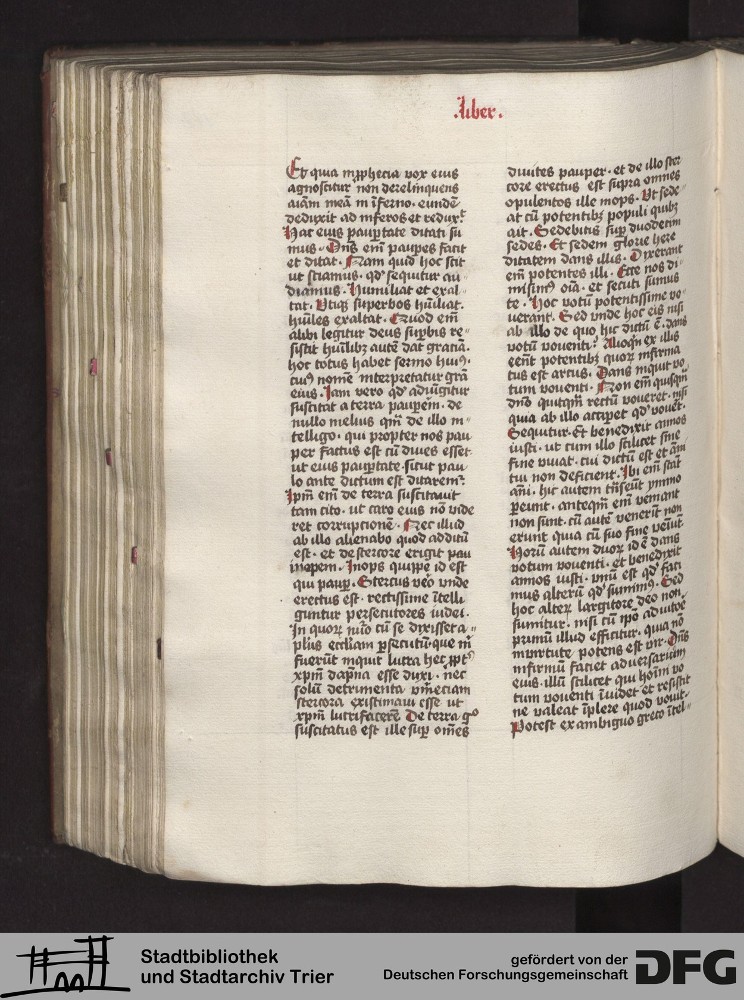 .Liber.
Et quia in ꝓphecia vox eius
agnoscitur non derelinquens
aīam meā in īferno. eundē
deduxit ad inferos et reduxᵗ
Hac eius pauꝑtate ditati su
mus. Dn̄s em̄ paupes facit
et ditat. Nam quid hoc sit
ut sciamus. qd' sequitur au
diamus. Humiliat et exal
tat. Utiqꝫ superbos hūiliat.
hūiles exaltat. Quod em̄
alibi legitur deus suꝑbis re
sistit hūilibꝫ autē dat graciā.
hoc totus habet sermo huiꝰ.
cuiꝰ nomē interpretatur grā
eius. Jam vero qd' adiūgitur
suscitat a terra pauꝑem. de
nullo melius qm̄ de illo in
telligo. qui propter nos pau
per factus est cū diues esset
ut eius pauꝑtate. sicut pau
lo ante dictum est ditarem̄.
Ipm̄ em̄ de terra suscitauit
tam cito. ut caro eius nō vide
ret corrupcionē. Nec illud
ab illo alienabo quod additū
est. et de stercore erigit pau
inopem. Inops quippe id est
qui pauꝑ. Stercus ṽo vnde
erectus est. rectissime ītelli
guntur persecutores iudei.
In quorꝫ nūo cū se dixisset a
pl'us eccliam ꝑsecutū. que m̄
fuerūt inquit lucra hec ꝓpt
xpm̄ dāpna esse duxi. nec
solū detrimenta vm̄eciam
stercora existimaui esse ut
xpm̄ lucrifacerē. De terra gᵒ
suscitatus est ille suꝑ om̄es
diuites pauper. et de illo ster
core erectus est supra omnes
opulentos ille inops. Ut sede
at cū potentibꝫ populi quibꝫ
ait. Sedebitis suꝑ duodecim
sedes. Et sedem glorie here
ditatem dans illis. Dixerant
em̄ potentes illi. Ecce nos di
misimꝰ oīa. et secuti sumus
te. Hoc votū potentissime vo
uerant. Sed vnde hoc eis nisi
ab illo de quo hic dictū ē. dans
votū vouenti. Alioqn̄ ex illis
eēnt potentibꝫ quorꝫ infirma
tus est arcus. Dans inquit vo
tum vouenti. Non em̄ quisqm̄
dn̄o quitqm̄ rectū voueret. nisi
quia ab illo accipet qd' vouet.
Sequitur. Et benedixit annos
iusti. ut cum illo scilicet sine
fine viuat. cui dictū est et āni
tui non deficient. Ibi em̄ stat
āni. hic autem trāseūt ymmo
ꝑeunt. anteqm̄ em̄ veniant
non sunt. cū autē venerit non
erunt quia cū suo fine veniūt
Horū autem duorꝫ id ē dans
votum vouenti. et benedixit
annos iusti. vnū est qd' faci
mus alterū qd' sumimꝰ. Sed
hoc alterꝫ largitore deo non
sumitur. nisi cū ipo adiutore
primū illud efficitur. quia nō
in virtute potens est vir. Dn̄s
infirmū faciet aduersarium
eius. illū scilicet qui hoīni vo
tum vouenti īuidet et resistit
ne valeat īplere quod vouit.
Potest ex ambiguo greco ītel
Stadtbibliothek
und Stadtarchiv Trier
gefördert von der
Deutschen Forschungsgemeinschaft
DFG